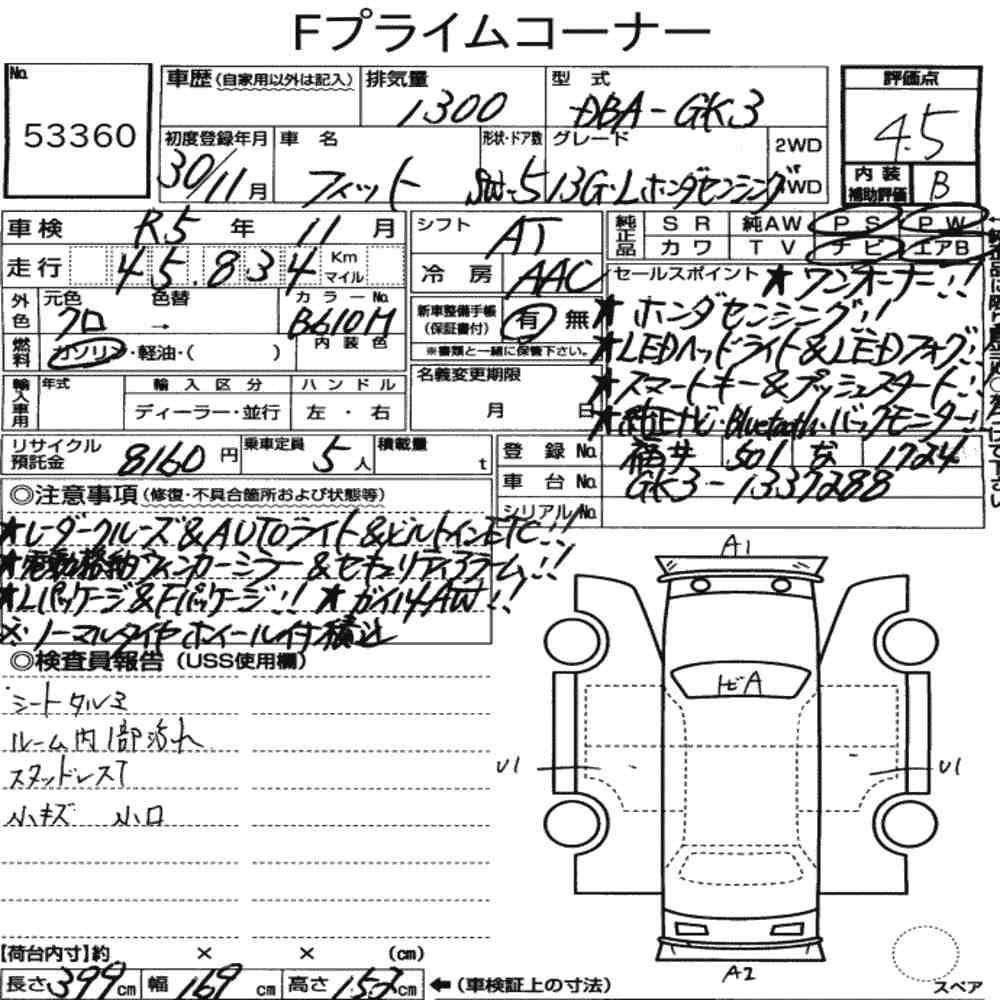 Fプライムコーナー
No. 53360
車歴(自家用以外は記入) 排気量 1300 型式 DBA-GK3
評価点 4.5
初度登録年月 30/11月 車名 フィット 形状・ドア数 SW-5 グレード 13G・Lホンダセンシング 2WD WD
内装補助評価 B
車検 R5年 11月 シフト AT
純正品 SR 純AW PS PW
カワ TV ナビ エアB
走行 45.834 Km マイル 冷房 AAC
セールスポイント ★ワンオーナー!!
外色 元色 クロ → 色替 カラーNo. B610M 内装色
新車整備手帳(保証書付) 有 無
※書類と一緒に保管下さい。
★ホンダセンシング!!
★LEDヘッドライト&LEDフォグ!!
燃料 ガソリン・軽油・( )
名義変更期限 月 日
★スマートキー&プッシュスタート!!
★純正ナビ・Bluetooth・バックモニター!!
輸入車用 年式 輸入区分 ハンドル
ディーラー・並行 左・右
リサイクル預託金 8160円 乗車定員 5人 積載量 t
登録No. 福井 501 な 1724
車台No. GK3-1337288
シリアルNo.
◎注意事項(修復・不具合箇所および状態等)
★レーダークルーズ&AUTOライト&ビルトインETC!!
★電動格納ウィンカーミラー&セキュリティアラーム!!
★Lパッケージ&Fパッケージ!! ★ガイ14AW!!
※ノーマルタイヤホイール付積込
◎検査員報告(USS使用欄)
シートタルミ
ルーム内1部汚れ
スタッドレスT
小キズ 小凹
A1
トビA
U1 U1
A2
【荷台内寸】約 × × (cm)
長さ 399cm 幅 169cm 高さ 152cm ←(車検証上の寸法)
スペア